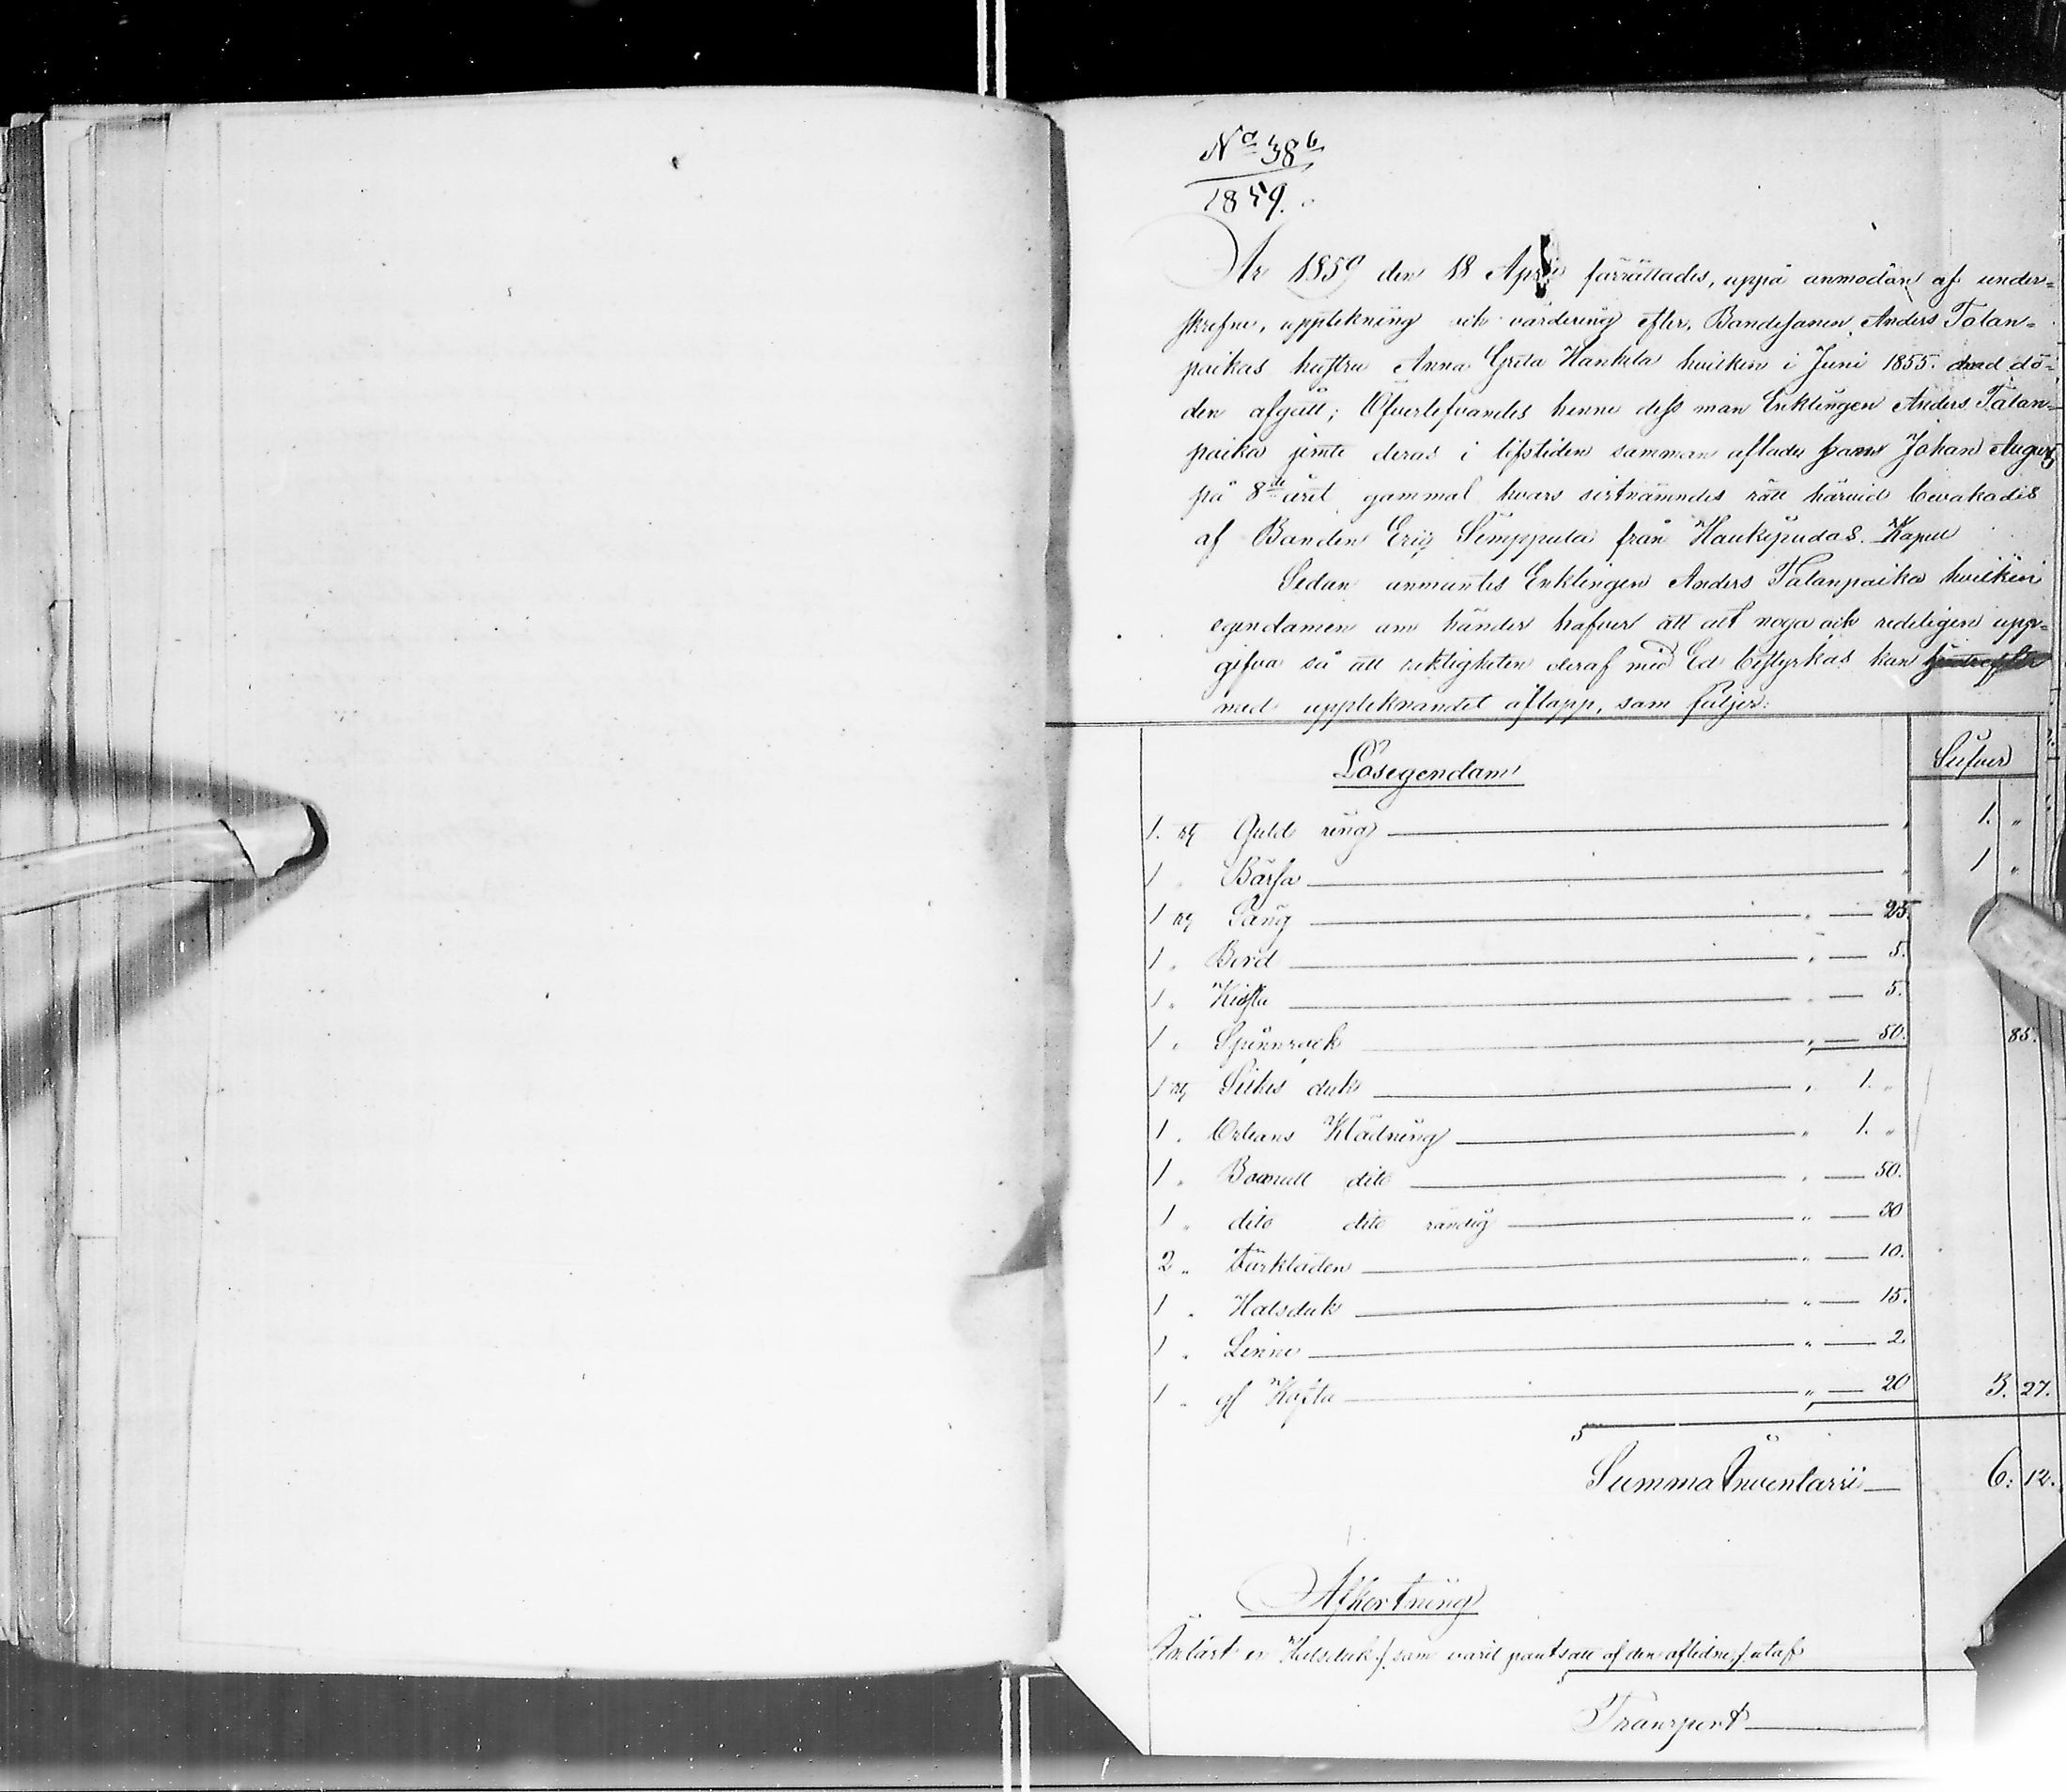 No 386
1859.
År 1859 den 18 April förrättades, uppå anmodan af under-
skrefne, uppteckning och värdering efter, Bondesonen Anders Tolan-
paikas hustru Anna Greta Hankela hvilken i Juni 1855. med dö-
den afgått; Öfverlefvandes henne dess man Enklingen Anders Talan-
paika jemte deras i lifstiden samman aflade son Johan August
på 8de året gammal hvars sistnämndes rätt härvid bevakades
af Bonden Eric Simppula från Haukipudas Kapell
Sedan anmantes Enklingen Anders Talanpaika hvilken
egendomen om händer hafver att alt noga och redeligen upp-
gifva så att riktigheten deraf med Ed bestyrkas kan
med upptecknandet aflopp, som följer:
Lösegendom Silfver
1. st Guld ring " 1. "
1 " Börsa " 1 "
1 st Säng " — 25.
1 " Bord " — 5.
1 " Kista " — 5.
1 " Spinnrock " — 50. 85.
1 st Silkes duk " 1. "
1 " Orleans Klädning " 1. "
1 " Bomull dito " — 50.
1 " dito dito randig " — 30
2 " Förkläden " — 10.
1 " Halsduk " — 15.
1 " Linne " — 2
1 " gl Kofta " — 20 3. 27.
Summa Inventarii — 6: 12.
Afkortning
Inlöst en Halsduk /: som varit pantsatt af den aflidne :/ utaf
Transport